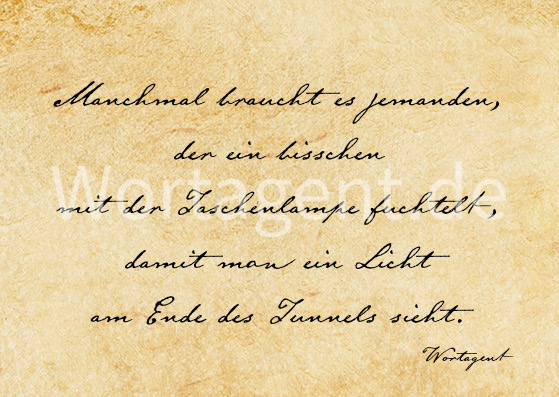 Manchmal braucht es jemanden,
der ein bisschen
Wortagent.de
mit der Taschenlampe fuchtelt,
damit man ein Licht
am Ende des Tunnels sieht.
Wortagent